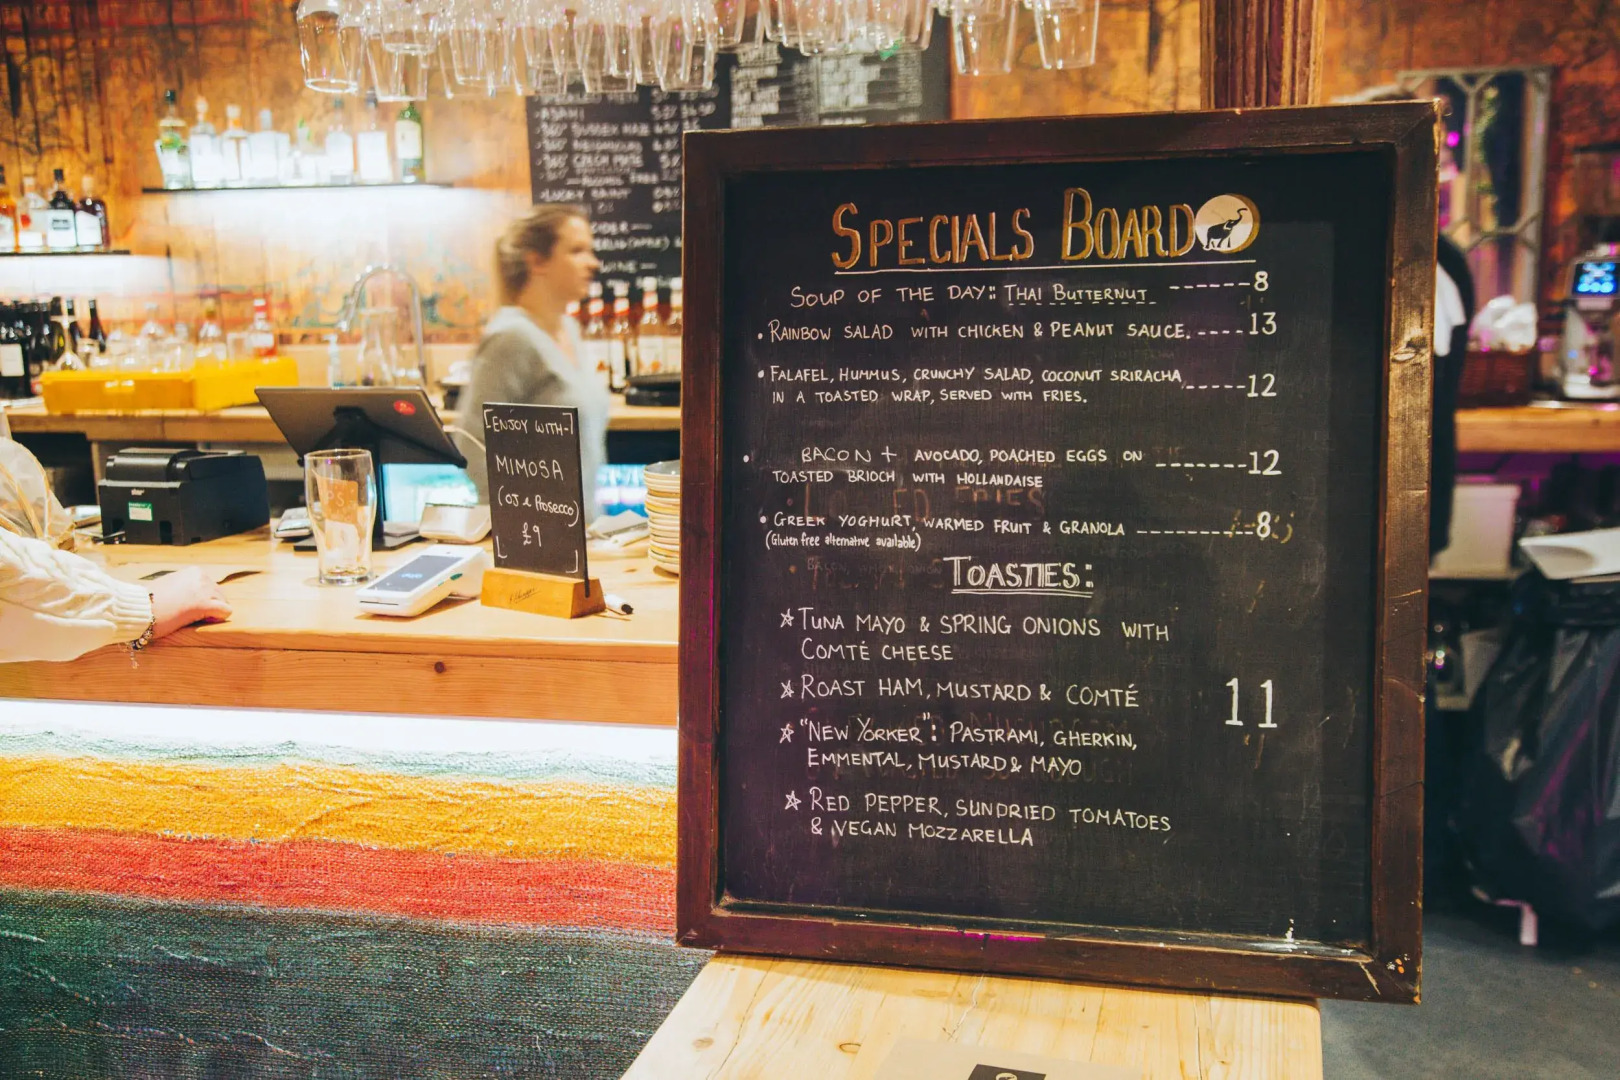 SPECIALS BOARD
SOUP OF THE DAY: THAI BUTTERNUT ------8
• RAINBOW SALAD WITH CHICKEN & PEANUT SAUCE. ----13
• FALAFEL, HUMMUS, CRUNCHY SALAD, COCONUT SRIRACHA, -----12
IN A TOASTED WRAP, SERVED WITH FRIES.
• BACON + AVOCADO, POACHED EGGS ON -------12
TOASTED BRIOCH WITH HOLLANDAISE
• GREEK YOGHURT, WARMED FRUIT & GRANOLA ---------8
(Gluten free alternative available)
TOASTIES:
☆ TUNA MAYO & SPRING ONIONS WITH
COMTÉ CHEESE
☆ ROAST HAM, MUSTARD & COMTÉ
11
☆ "NEW YORKER": PASTRAMI, GHERKIN,
EMMENTAL, MUSTARD & MAYO
☆ RED PEPPER, SUNDRIED TOMATOES
& VEGAN MOZZARELLA
[ENJOY WITH-]
MIMOSA
(OJ & Prosecco)
£9
ASAHI
360° SUSSEX
360° CZECH
LUCKY SAINT
CIDER —
WINE —